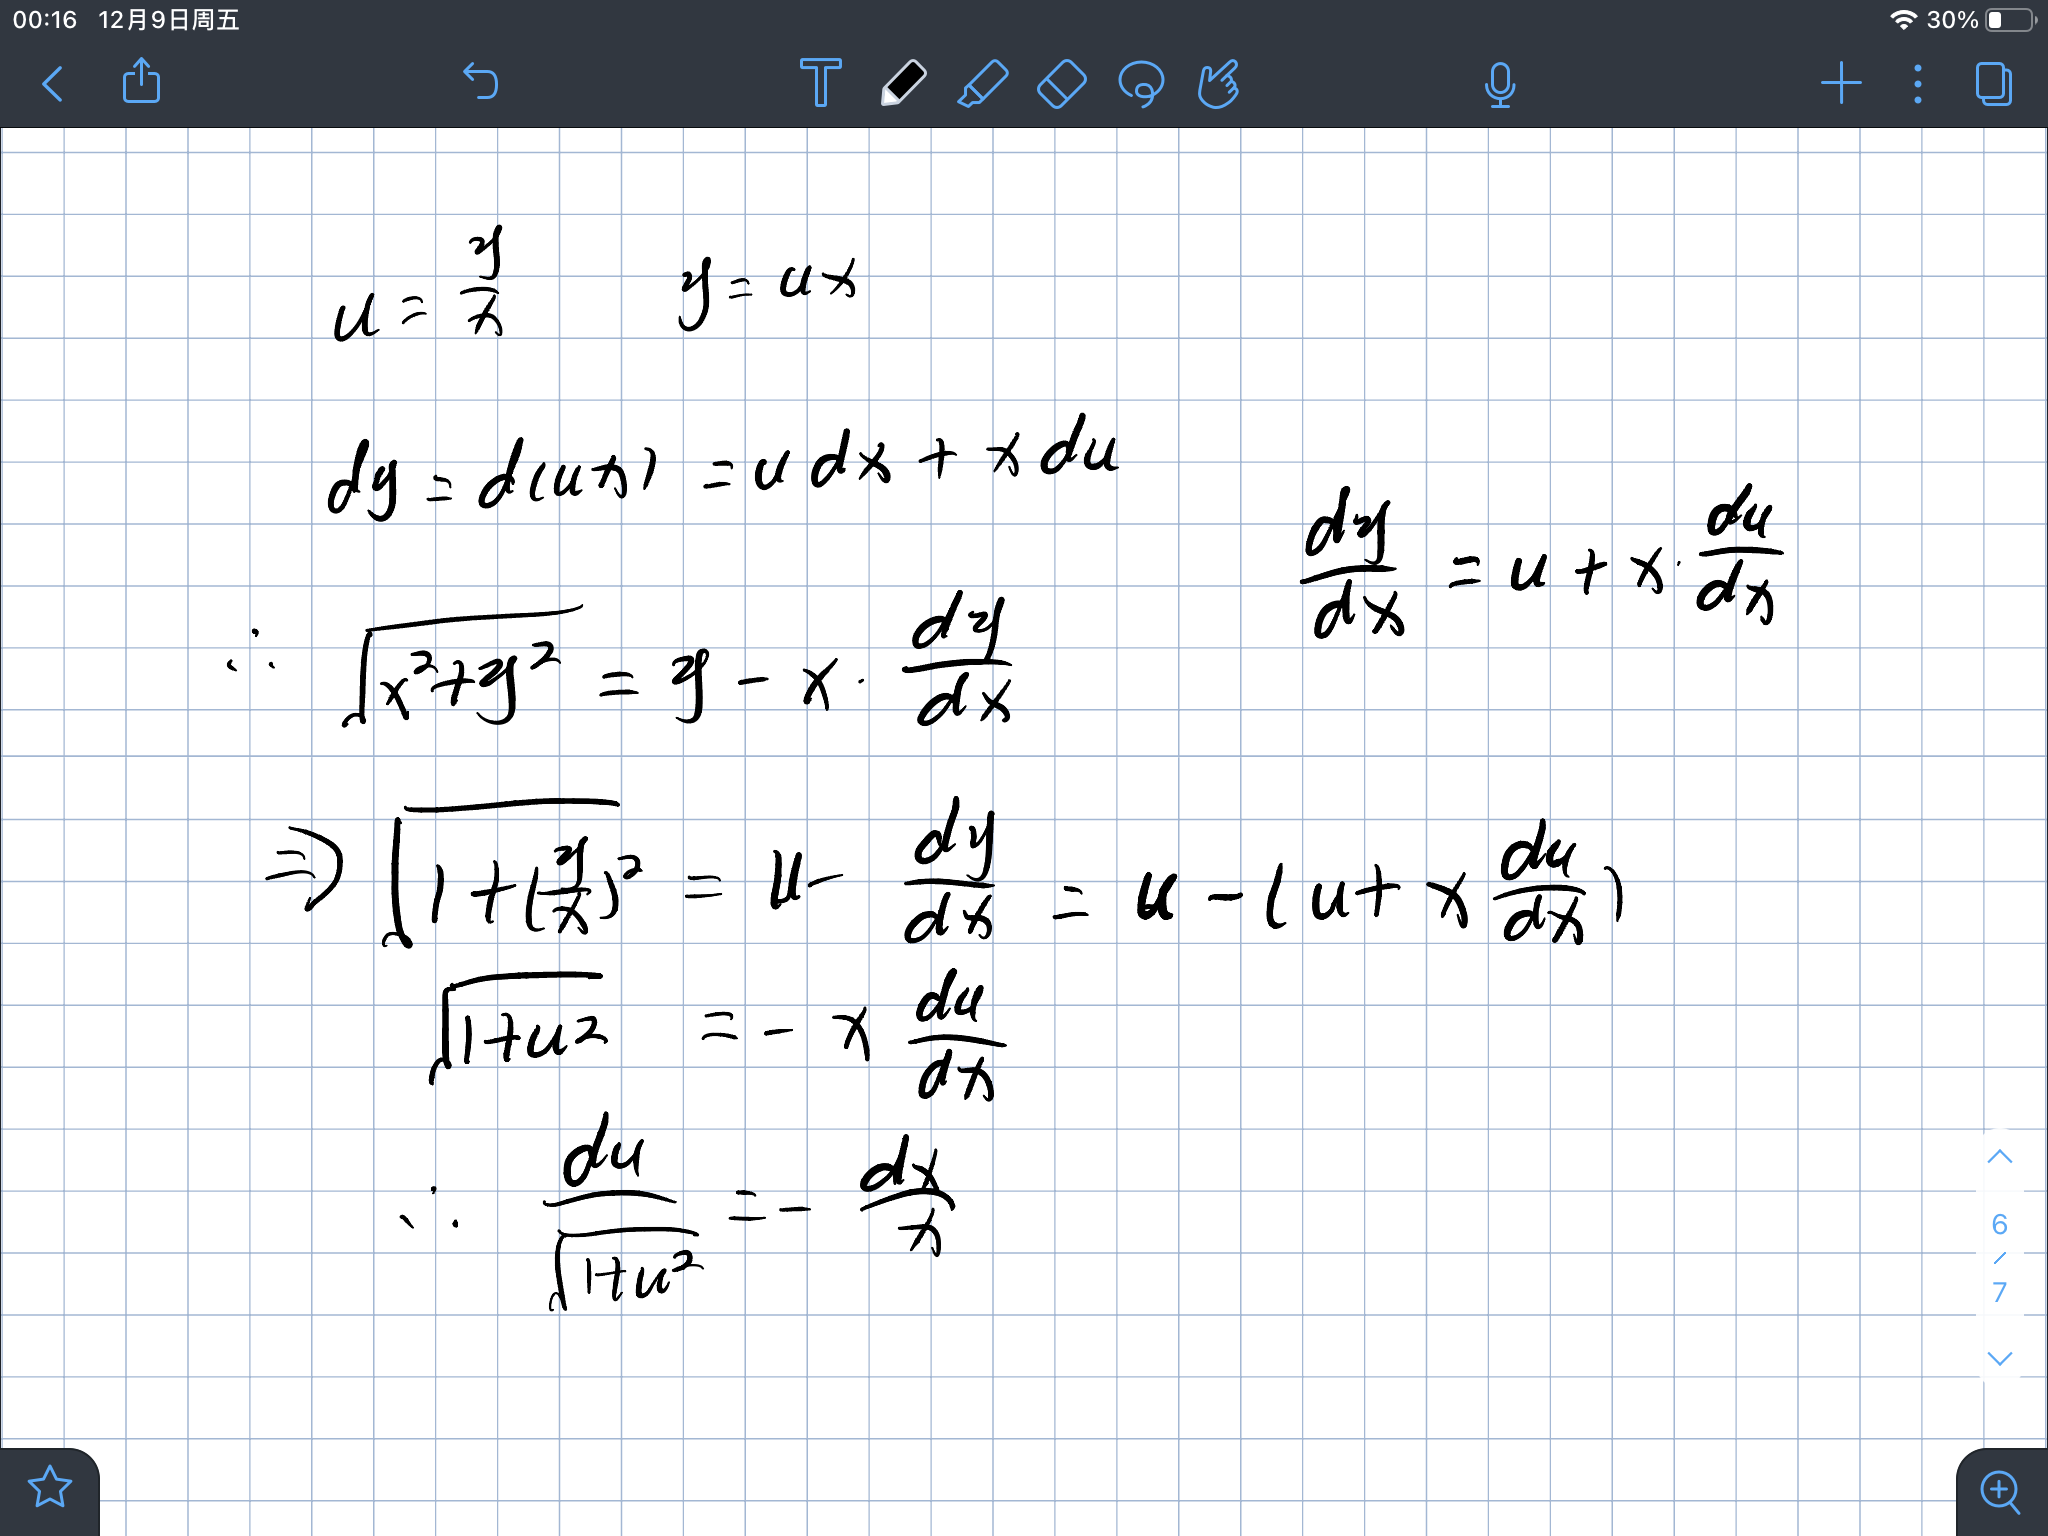 00:16 12月9日周五 30%
u = y/x y = ux
dy = d(ux) = u dx + x du
dy/dx = u + x · du/dx
∴ √(x²+y²) = y - x · dy/dx
⇒ √(1+(y/x)²) = u - dy/dx = u - (u + x du/dx)
√(1+u²) = - x du/dx
∴ du/√(1+u²) = - dx/x
6
/
7